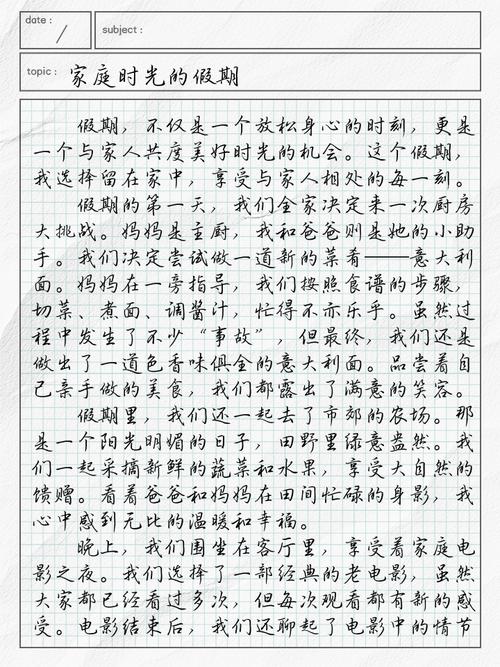 date :
/
subject :
topic : 家庭时光的假期
假期，不仅是一个放松身心的时刻，更是
一个与家人共度美好时光的机会。这个假期，
我选择留在家中，享受与家人相处的每一刻。
假期的第一天，我们全家决定来一次厨房
大挑战。妈妈是主厨，我和爸爸则是她的小助
手。我们决定尝试做一道新的菜肴——意大利
面。妈妈在一旁指导，我们按照食谱的步骤，
切菜、煮面、调酱汁，忙得不亦乐乎。虽然过
程中发生了不少“事故”，但最终，我们还是
做出了一道色香味俱全的意大利面。品尝着自
己亲手做的美食，我们都露出了满意的笑容。
假期里，我们还一起去了市郊的农场。那
是一个阳光明媚的日子，田野里绿意盎然。我
们一起采摘新鲜的蔬菜和水果，享受大自然的
馈赠。看着爸爸和妈妈在田间忙碌的身影，我
心中感到无比的温暖和幸福。
晚上，我们围坐在客厅里，享受着家庭电
影之夜。我们选择了一部经典的老电影，虽然
大家都已经看过多次，但每次观看都有新的感
受。电影结束后，我们还聊起了电影中的情节